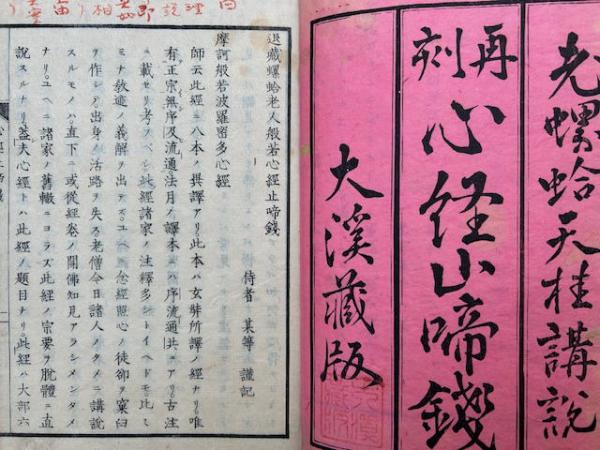 老螺蛤天桂講說
再刻
心经止啼錢
大溪藏版
退藏螺蛤老人般若心經止啼錢
侍者 某等 謹記
摩訶般若波羅密多心經
師云此經ニ八本ノ撰譯アリ此本ハ玄奘所譯ノ經ナリ唯
有正宗無序及流通法月ノ譯本ニハ序流通共ニアリ古注
ニ載セリ考スベシ此經諸家ノ注釋多シトイヘドモ比シ
ミナ教迹ノ義解ヲ出デズユヘニ念經照心ノ徒卻テ窠臼
ヲ作シテ出身ノ活路ヲ失ス老僧今日諸人ノタメニ講說
スルモノハ直下ニ或從經卷ノ開佛知見アラシメンタメ
ナリユヘニ諸家ノ舊轍ニヨラズ此經ノ宗要ヲ脫體ニ直
說スルナリ蓋夫心經トハ此經ノ題目ナリ此經ハ大部六